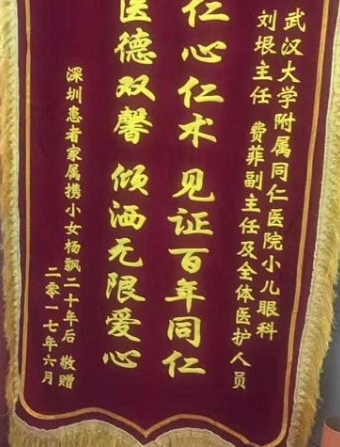 武汉大学附属同仁医院小儿眼科
刘垠主任 费菲副主任及全体医护人员
仁心仁术 见证百年同仁
医德双馨 倾洒无限爱心
深圳患者家属携小女杨飘二十年后 敬赠
二零一七年六月